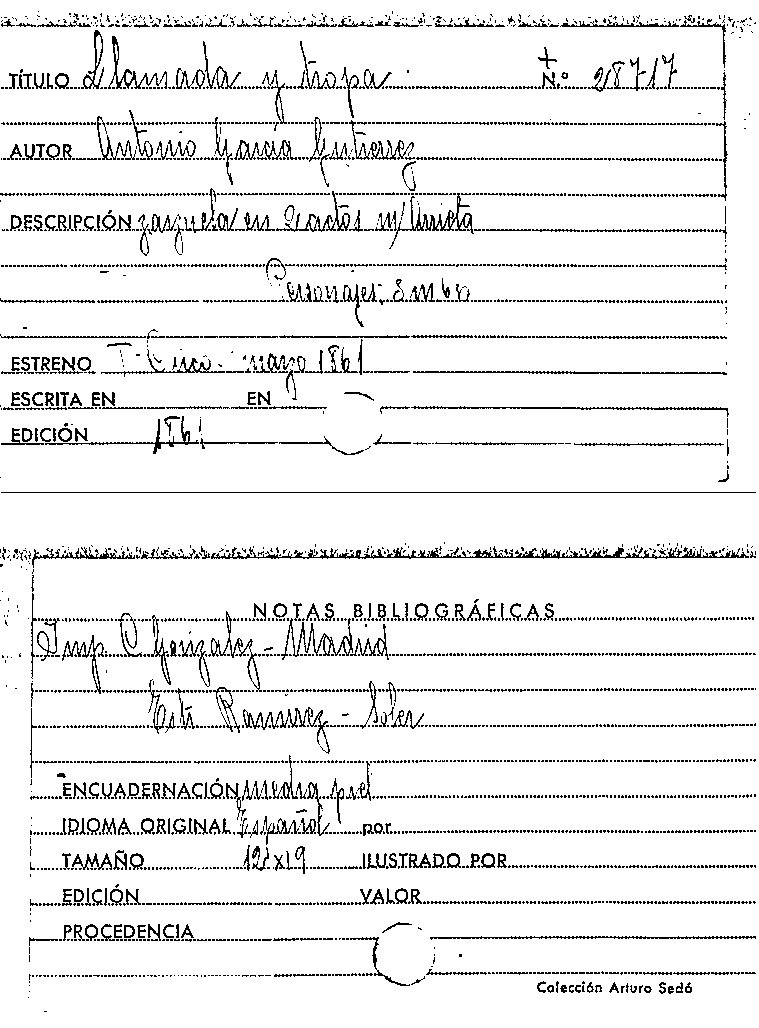 TÍTULO Llamada y tropa. + N.º 28717
AUTOR Antonio García Gutierrez
DESCRIPCIÓN zarzuela en 2 actos m/ Arrieta
Personajes.
ESTRENO T- Circo. marzo 1861
ESCRITA EN EN
EDICIÓN 1861
NOTAS BIBLIOGRÁFICAS
Imp. C Gonzalez - Madrid
Estr Ramirez - Soler
ENCUADERNACIÓN media piel
IDIOMA ORIGINAL Español por
TAMAÑO 12x19 ILUSTRADO POR
EDICIÓN VALOR
PROCEDENCIA
Colección Arturo Sedó